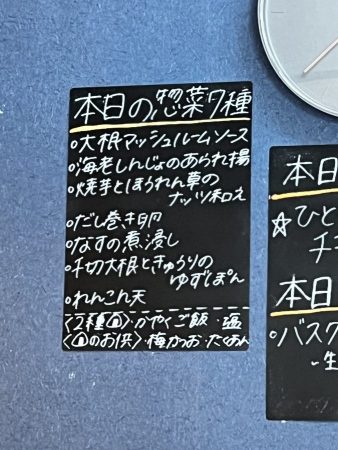 本日の惣菜7種
○大根マッシュルームソース
○海老しんじょのあられ揚
○焼芋とほうれん草の
ナッツ和え
○だし巻き卵
○なすの煮浸し
○千切大根ときゅうりの
ゆずぽん
○れんこん天
〈2種🍙〉・かやくご飯・塩
〈🍙のお供〉・梅かつお・たくあん
本日
☆ひと
チ
本日
○バスク
-生